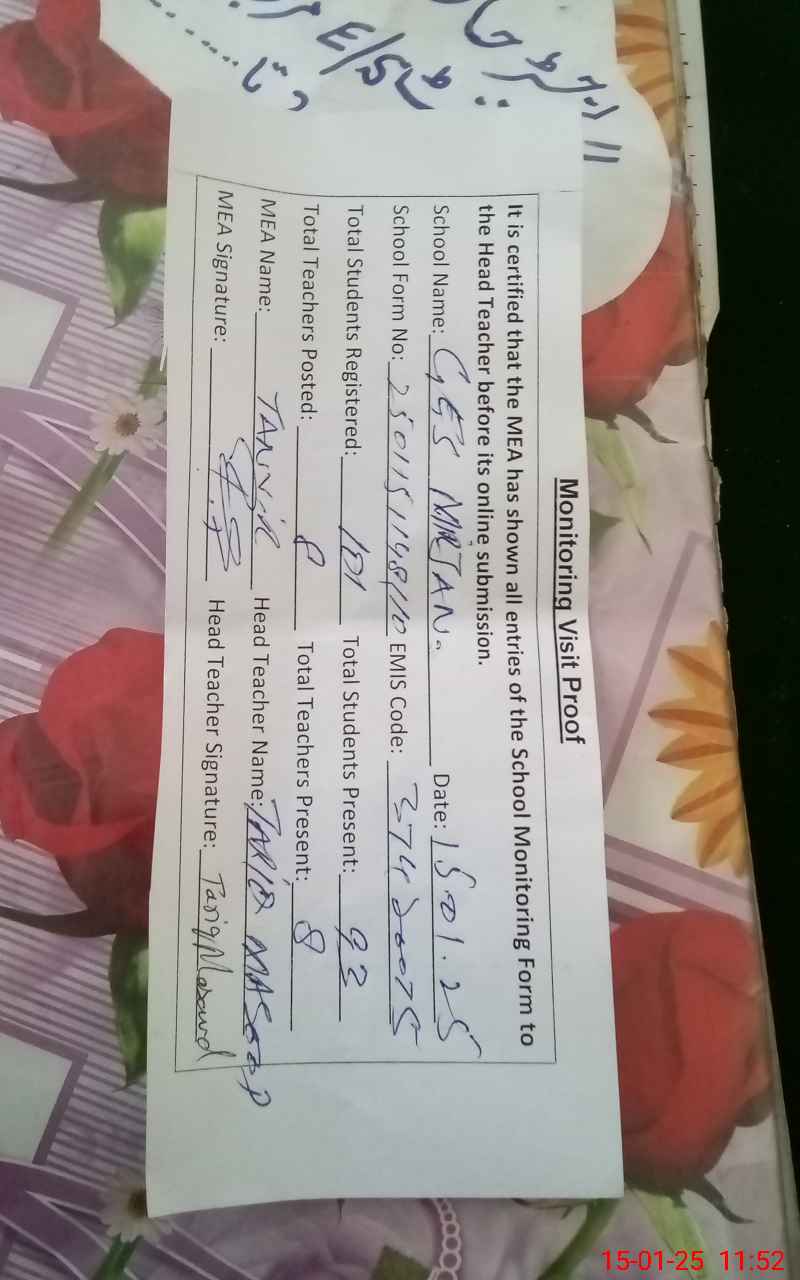 Monitoring Visit Proof
It is certified that the MEA has shown all entries of the School Monitoring Form to
the Head Teacher before its online submission.
School Name: GES MIRJAN. Date: 15.01.25
School Form No: EMIS Code: 37420075
Total Students Registered: 101 Total Students Present: 93
Total Teachers Posted: 8 Total Teachers Present: 8
MEA Name: TANVIR Head Teacher Name: TARIQ MASOOD
MEA Signature: Head Teacher Signature: Tariq Masood
15-01-25 11:52